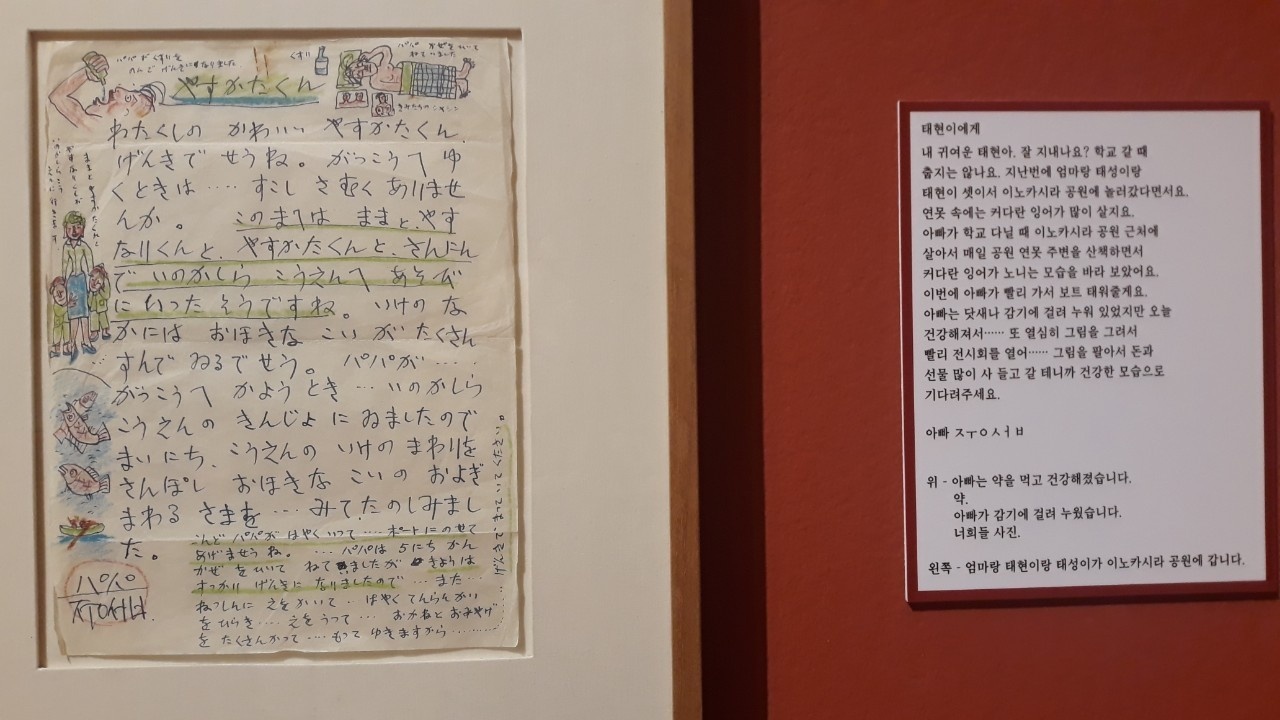 パパが くすりを
のんで げんきになりました
くすり
パパが かぜをひいて
ねていました
きみたちの シャシン
やすかたくん
わたくしの かわいい やすかたくん、
げんきで せうね。 がっこうへ ゆ
くときは ‥‥ すこし さむく ありませ
んか。 このまへは ままと、やす
なりくんと、やすかたくんと、さんにん
で いのかしら こうえんへ あそび
に いった そうですね。 いけの な
かには おほきな こい が たくさん
すんで ゐるでせう。 パパが ‥‥‥
がっこうへ かよう とき … いのかしら
こうえんの きんじょ に ゐましたので
まいにち、 こうえんの いけの まわりを
さんぽし おほきな こい の およぎ
まわる さまを … みて、たのしみまし
た。
こんど パパが はやく いって ‥‥ ボートに のせて
あげませう ね。 … パパは 5にち かん
かぜ を ひいて ねて ましたが きょうは
すっかり げんきに なりましたので … また …
ねっしんに えを かいて … はやく てんらんかい
を ひらき ‥‥ えを うって … おかねと おみやげ
を たくさんかって ‥‥ もって ゆきますから ‥‥‥‥
げんきで、まっていて ください。
パパ
ㅈㅜㅇㅅㅓㅂ
태현이에게
내 귀여운 태현아. 잘 지내나요? 학교 갈 때
춥지는 않나요. 지난번에 엄마랑 태성이랑
태현이 셋이서 이노카시라 공원에 놀러갔다면서요.
연못 속에는 커다란 잉어가 많이 살지요.
아빠가 학교 다닐 때 이노카시라 공원 근처에
살아서 매일 공원 연못 주변을 산책하면서
커다란 잉어가 노니는 모습을 바라 보았어요.
이번에 아빠가 빨리 가서 보트 태워줄게요.
아빠는 닷새나 감기에 걸려 누워 있었지만 오늘
건강해져서…… 또 열심히 그림을 그려서
빨리 전시회를 열어…… 그림을 팔아서 돈과
선물 많이 사 들고 갈 테니까 건강한 모습으로
기다려주세요.
아빠 ㅈㅜㅇㅅㅓㅂ
위 - 아빠는 약을 먹고 건강해졌습니다.
약.
아빠가 감기에 걸려 누웠습니다.
너희들 사진.
왼쪽 - 엄마랑 태현이랑 태성이가 이노카시라 공원에 갑니다.